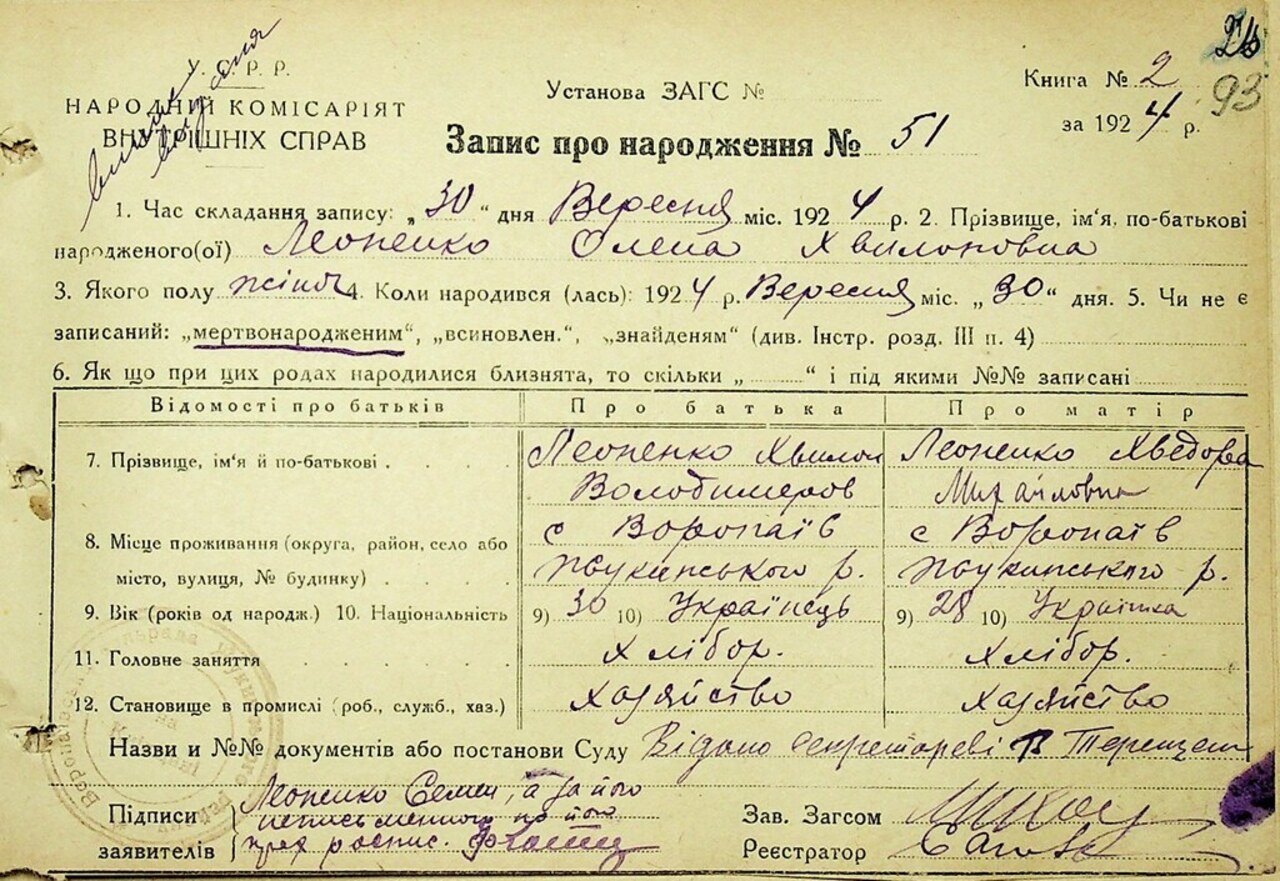 26
93
У. С. Р. Р.
НАРОДНІЙ КОМІСАРІЯТ
ВНУТРІШНІХ СПРАВ
Установа ЗАГС №
Книга № 2
за 1924 р.
Запис про народження № 51
1. Час складання запису: „30“ дня Вересня міс. 1924 р. 2. Прізвище, ім'я, по-батькові
народженого(ої) Леоненко Олена Хвилоновна
3. Якого полу жіноч 4. Коли народився (лась): 1924 р. Вересня міс. „30“ дня. 5. Чи не є
записаний: „мертвонародженим“, „всиновлен.“, „знайденям“ (див. Інстр. розд. III п. 4)
6. Як що при цих родах народилися близнята, то скільки „ “ і під якими №№ записані
Відомості про батьків Про батька Про матір
7. Прізвище, ім'я й по-батькові . Леоненко Хвилон Леоненко Хведора
Володимеров Михайловна
8. Місце проживання (округа, район, село або с Воропаїв с Воропаїв
місто, вулиця, № будинку) . Жукинського р. Жукинського р.
9. Вік (років од народж.) 10. Національність 9) 30 10) Українець 9) 28 10) Українка
11. Головне заняття Хлібор. Хлібор.
12. Становище в промислі (роб., служб., хаз.) Хазяйство Хазяйство
Назви и №№ документів або постанови Суду Відано секретареві
Підписи Леоненко Семен, а за його
неписьменного по його
заявителів роспис.
Зав. Загсом
Реєстратор